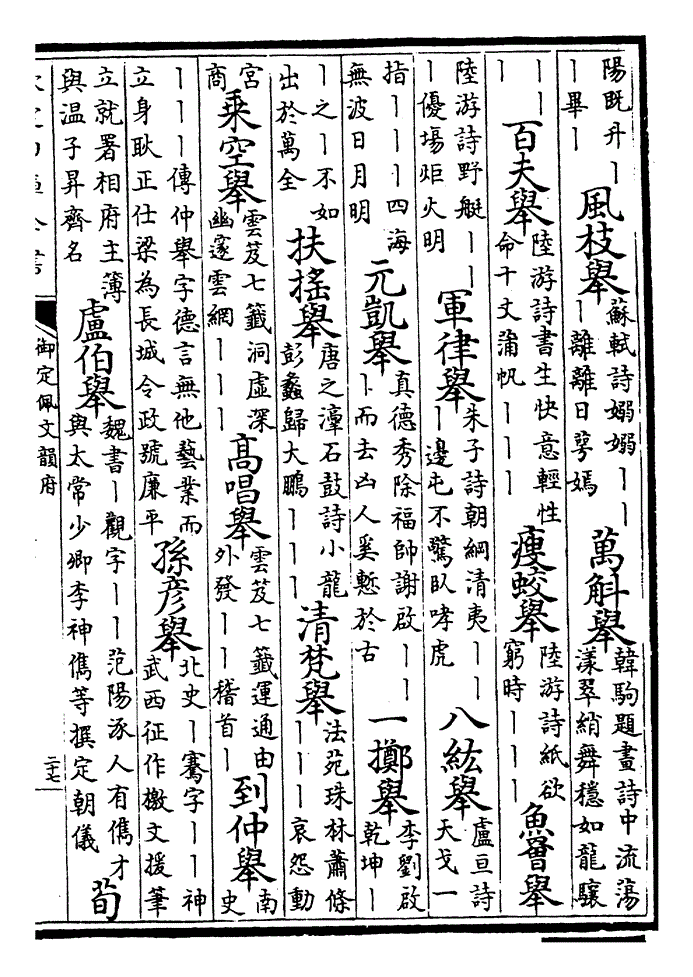 陽既升丨
丨畢丨
風枝舉
蘇軾詩嫋嫋丨丨
丨離離日萼嫣
萬斛舉
韓駒題畫詩中流蕩
漾翠綃舞穩如龍驤
丨丨
丨
百夫舉
陸游詩書生快意輕性
命千丈蒲帆丨丨丨
瘦蛟舉
陸游詩紙欲
窮時丨丨丨
魚罾舉
陸游詩野艇丨丨
丨優場炬火明
軍律舉
朱子詩朝綱清夷丨丨
丨邊屯不驚臥哮虎
八紘舉
盧亘詩
天戈一
指丨丨丨四海
無波日月明
元凱舉
真德秀除福帥謝啟丨丨
丨而去凶人奚慙於古
一擲舉
李劉啟
乾坤丨
丨之丨不如
出於萬全
扶搖舉
唐之漳石鼓詩小龍
彭蠡歸大鵬丨丨丨
清梵舉
法苑珠林蕭條
丨丨丨哀怨動
宮
商
乘空舉
雲笈七籤洞虛深
幽邃雲網丨丨丨
高唱舉
雲笈七籤運通由
外發丨丨稽首丨
到仲舉
南
史
丨丨丨傳仲舉字德言無他藝業而
立身耿正仕梁為長城令政號廉平
孫彥舉
北史丨騫字丨丨神
武西征作檄文援筆
立就署相府主簿
與温子昇齊名
盧伯舉
魏書丨觀字丨丨范陽涿人有儁才
與太常少卿李神儁等撰定朝儀
荀
御定佩文韻府
二十七